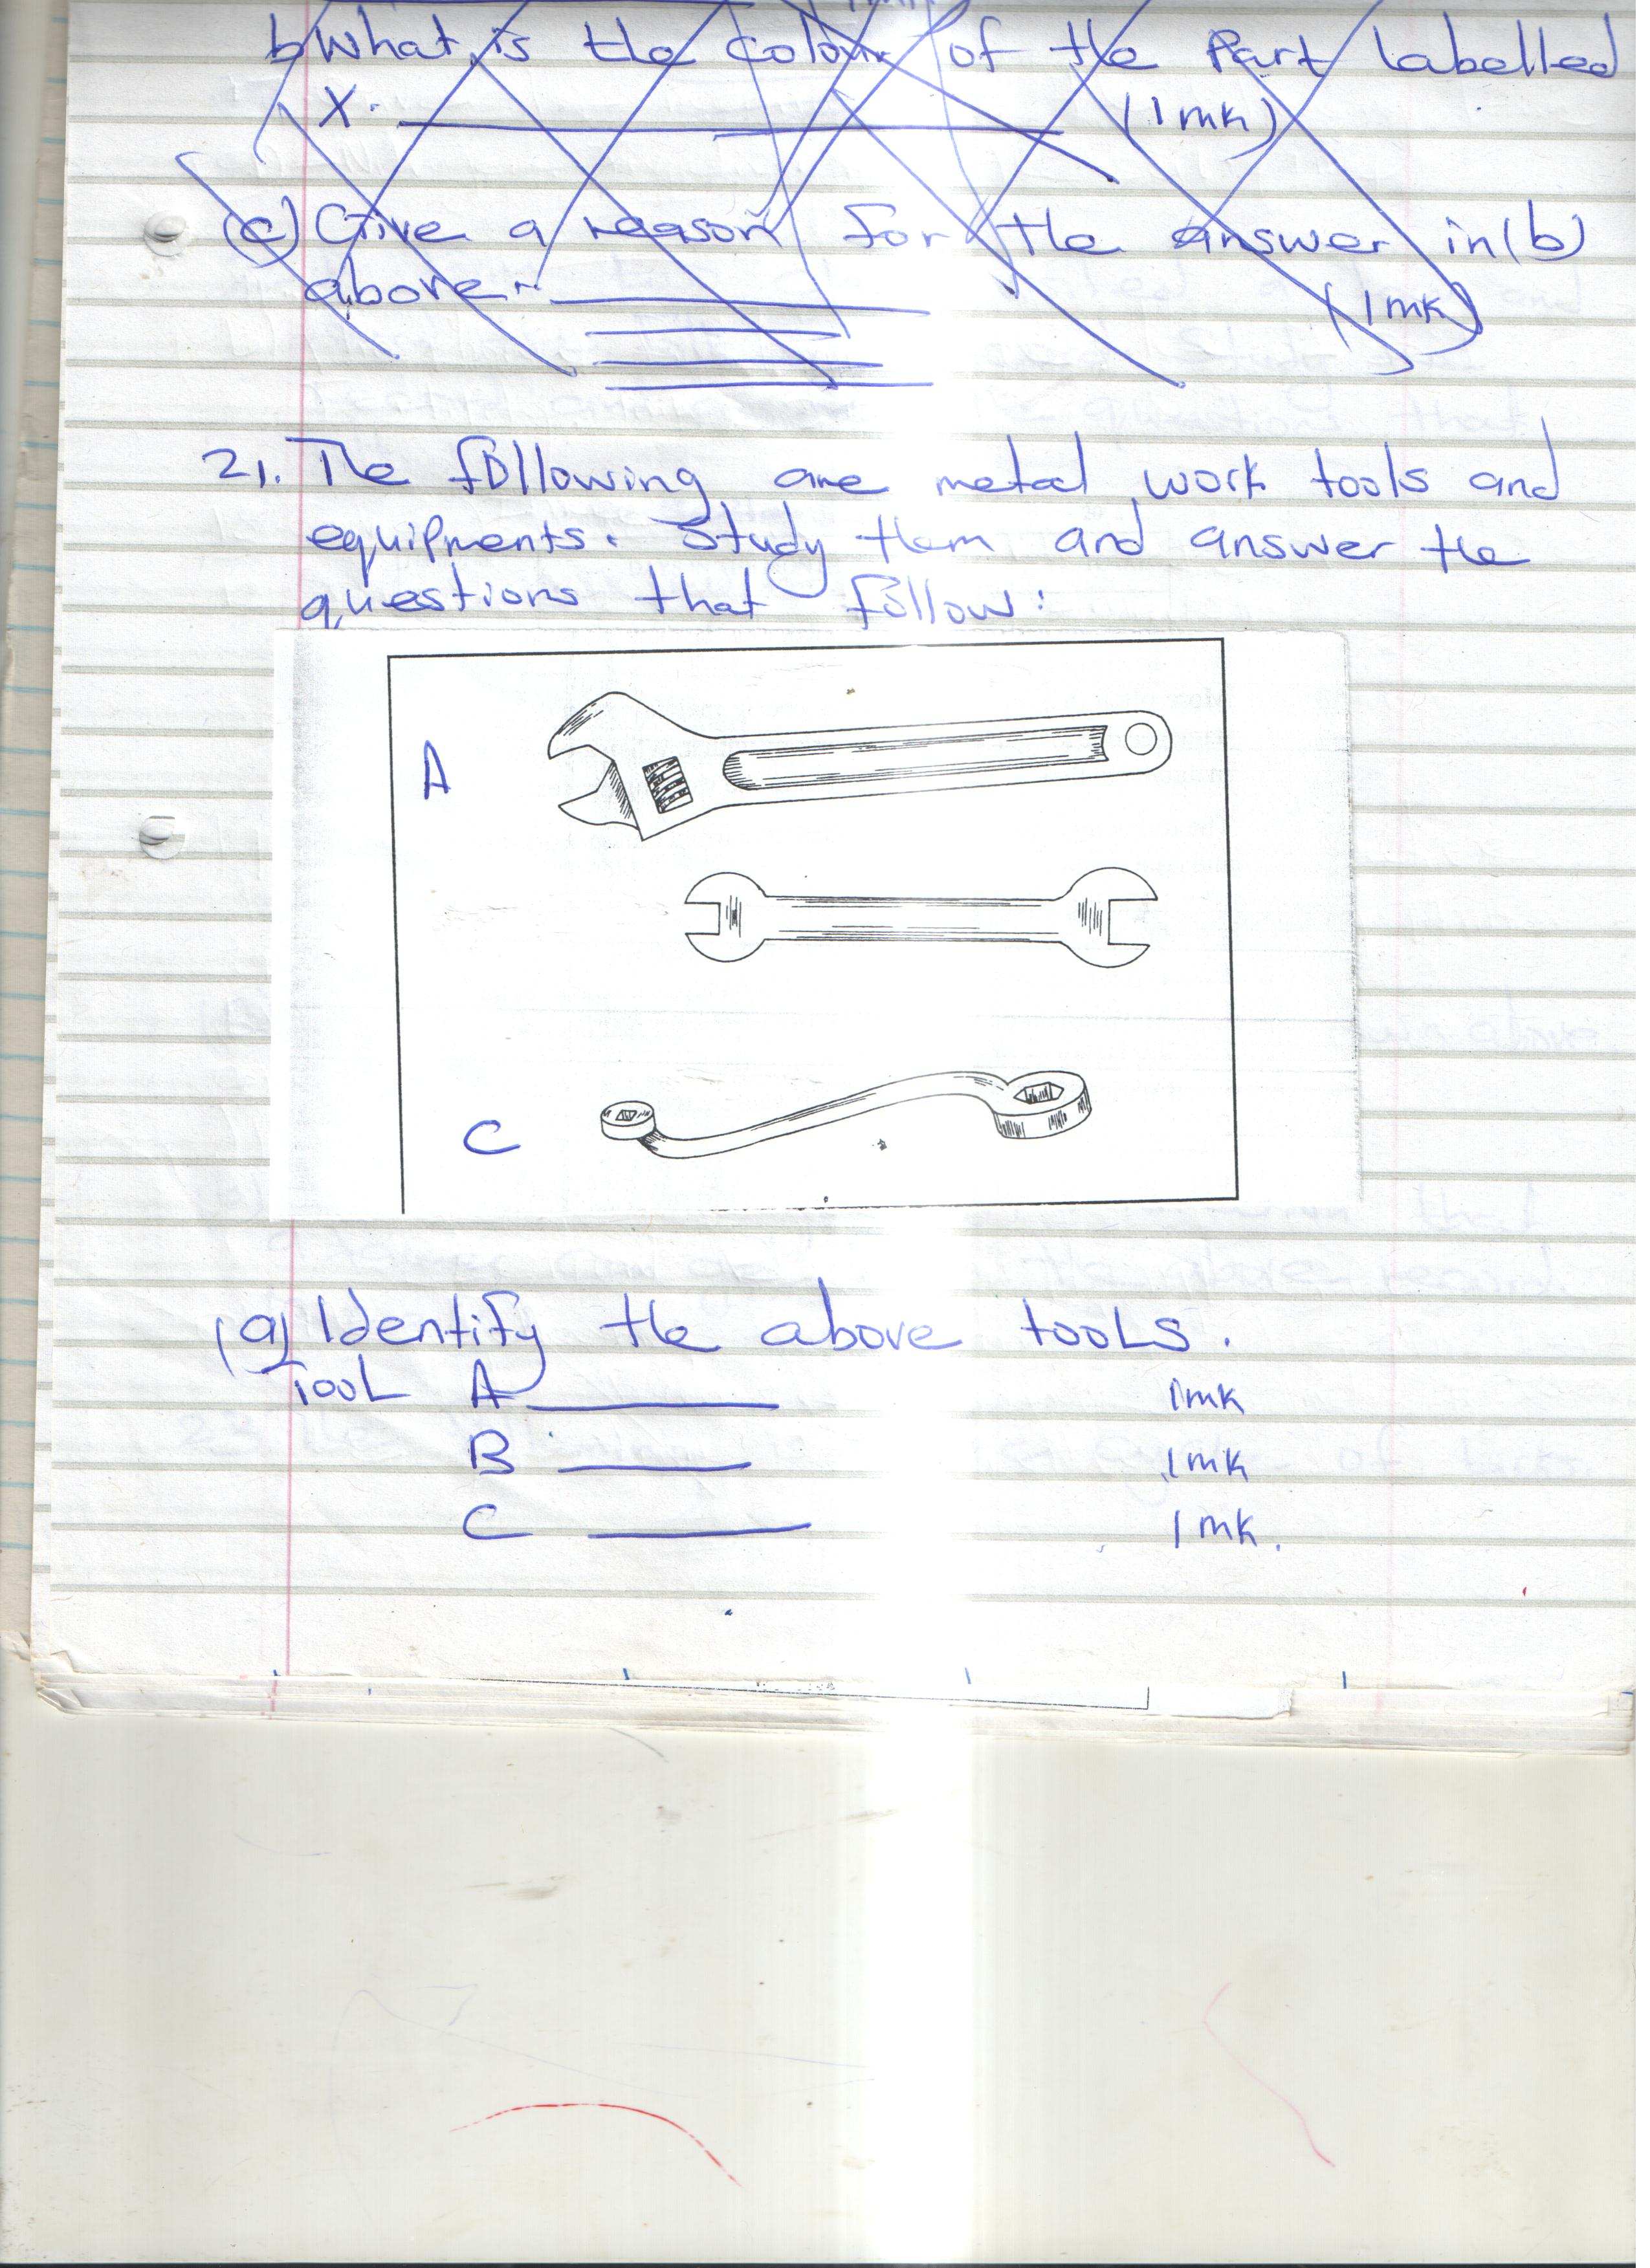 b) What is the colour of the Part labelled
X. (1mk)
(c) Give a reason for the answer in (b)
above- (1mk)
21. The following are metal work tools and
equipments. Study them and answer the
questions that follow:
A
C
(a) Identify the above tools.
Tool A 1mk
B 1mk
C 1mk.